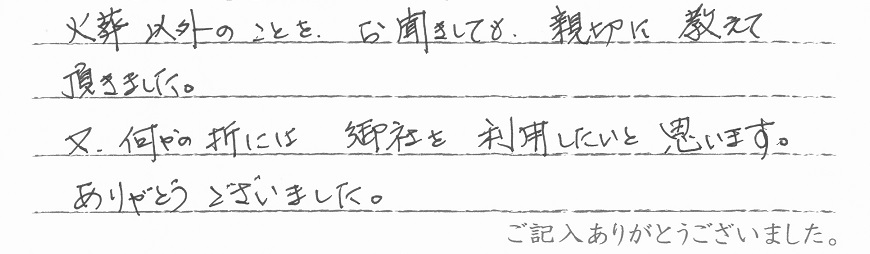 火葬以外のことを、お聞きしても、親切に教えて
頂きました。
又、何かの折には御社を利用したいと思います。
ありがとうございました。
ご記入ありがとうございました。